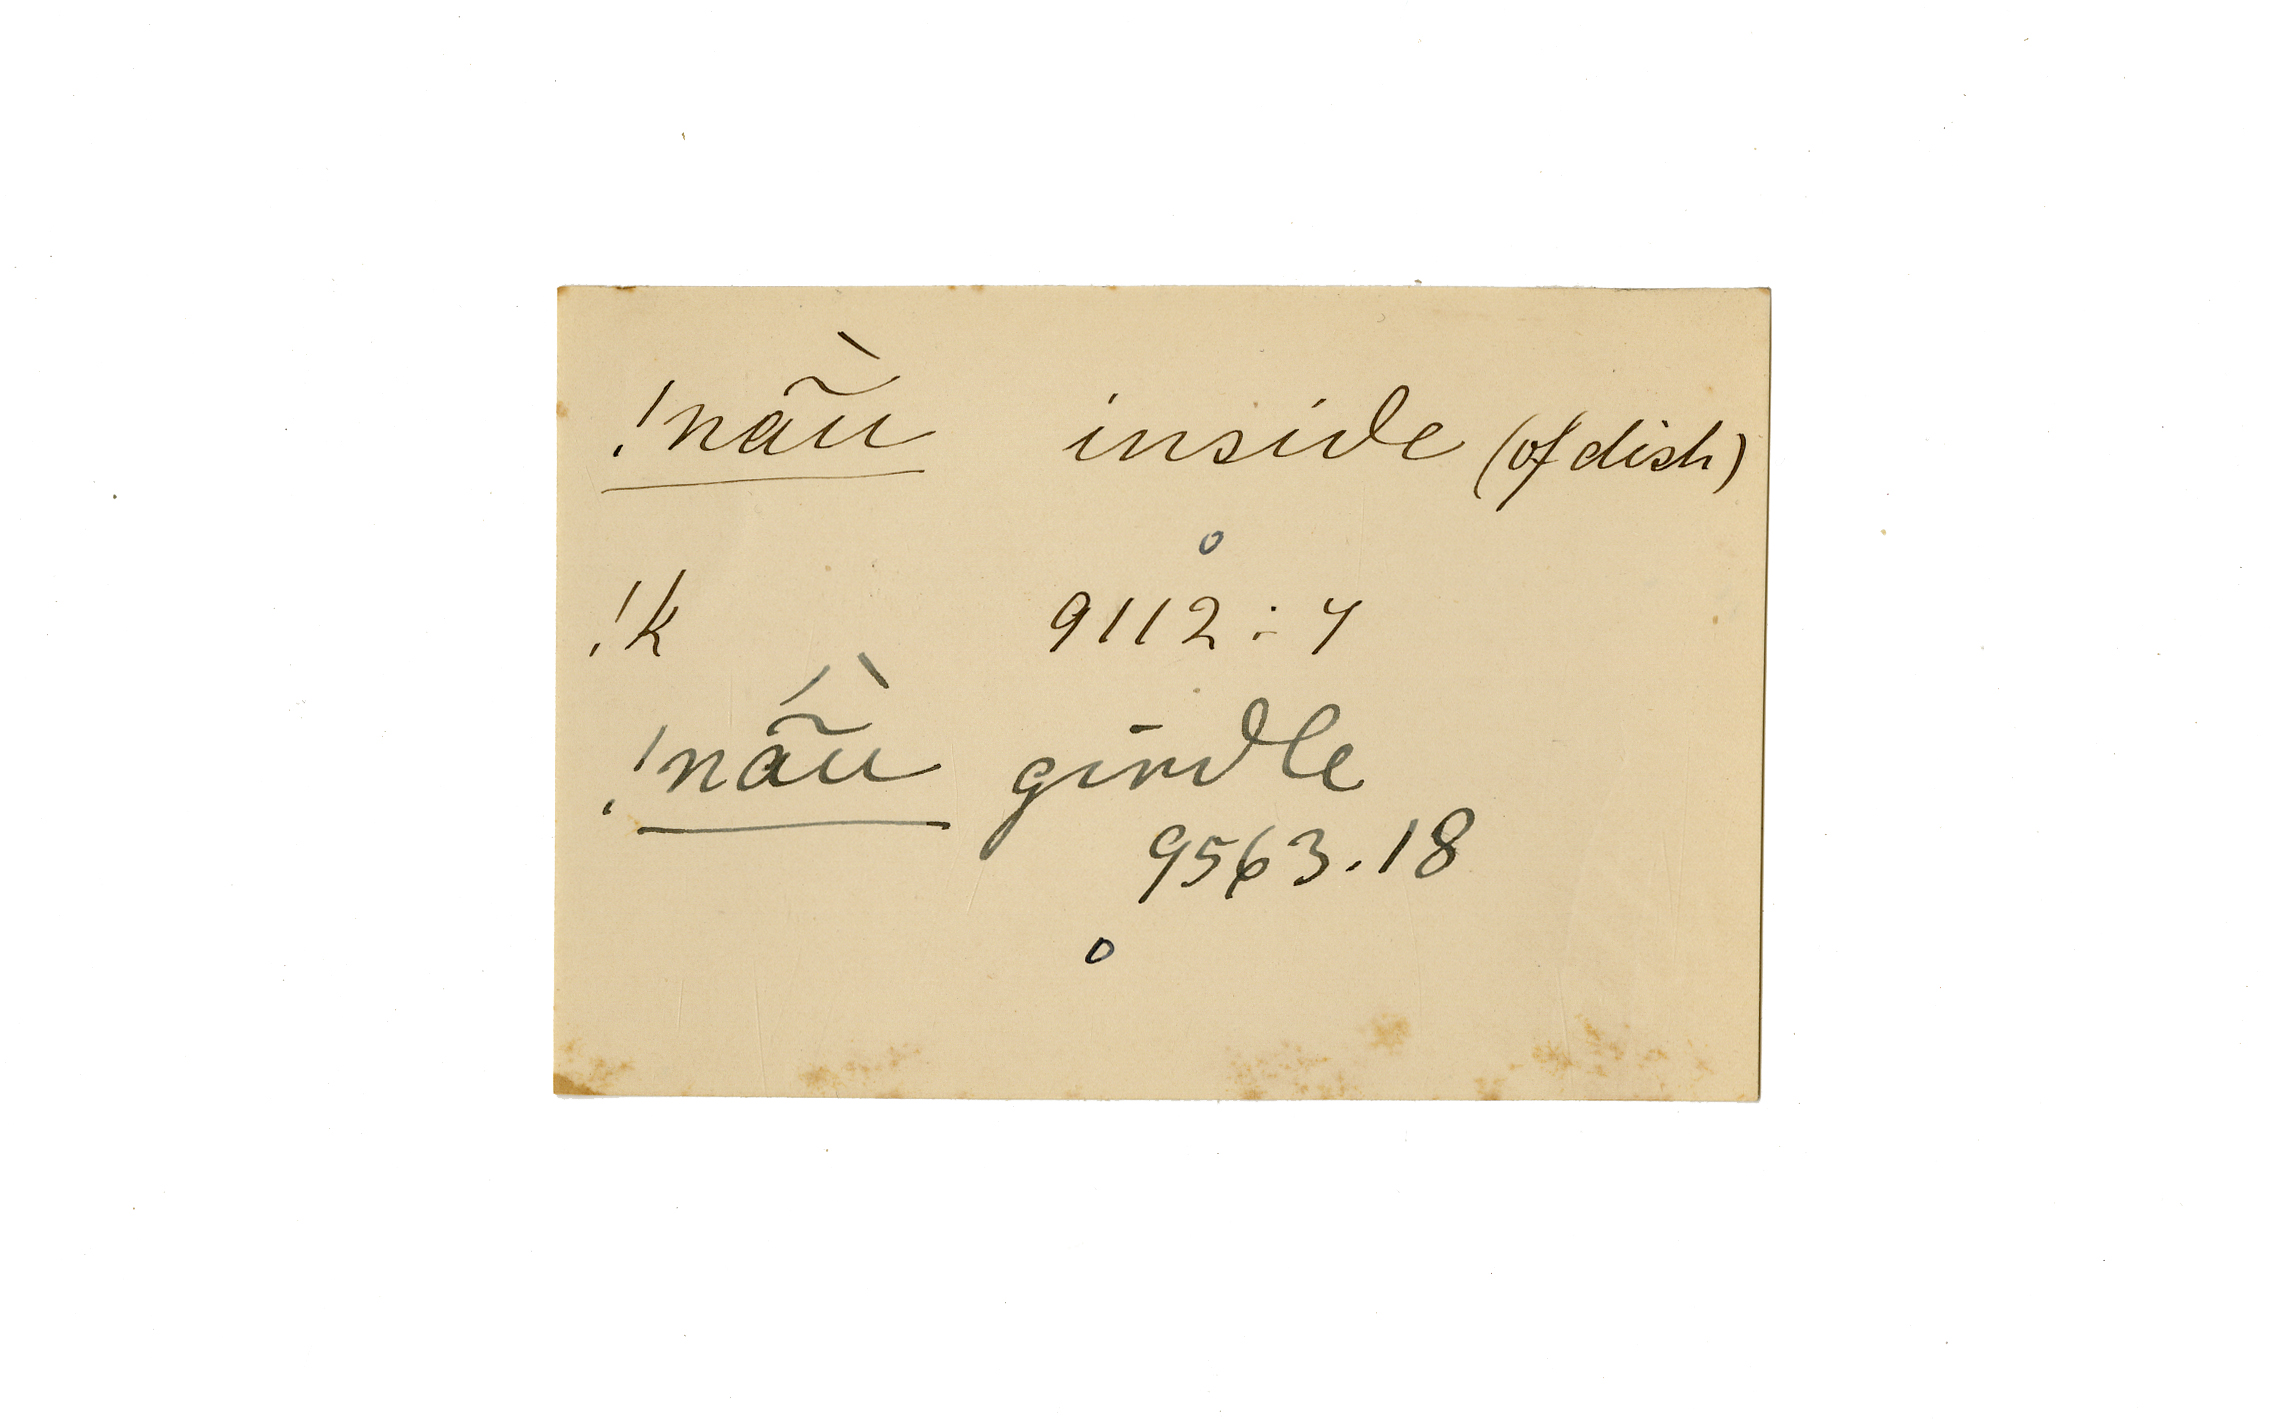 !nã̀u inside (of dish)
o
!k 9112 : 7
!nã́ù girdle
9563.18
o